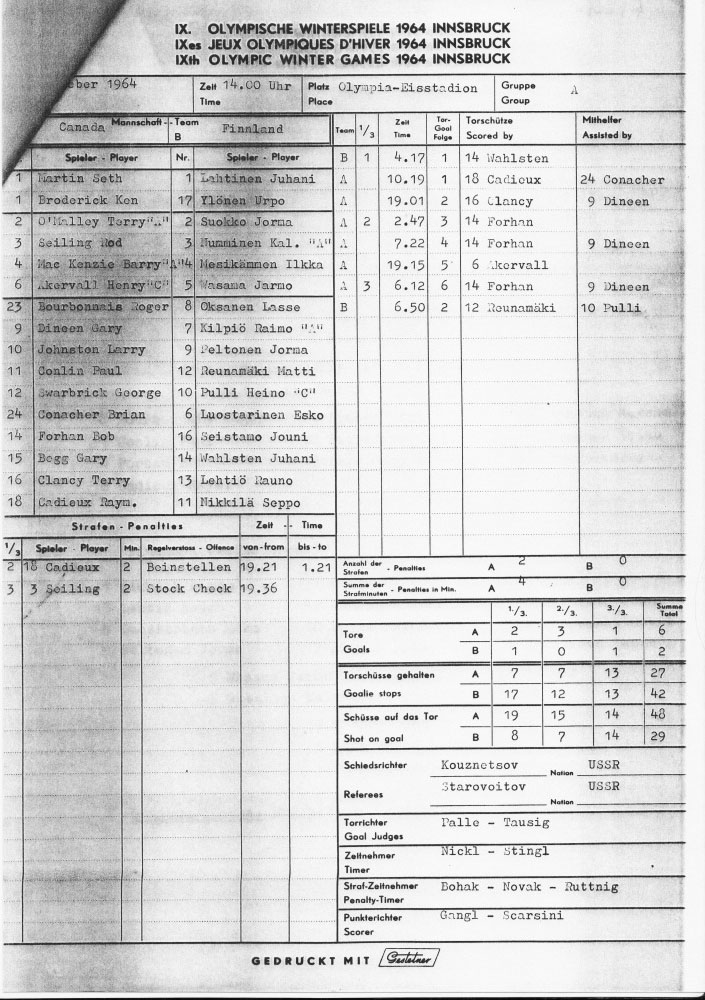 IX. OLYMPISCHE WINTERSPIELE 1964 INNSBRUCK
IXes JEUX OLYMPIQUES D'HIVER 1964 INNSBRUCK
IXth OLYMPIC WINTER GAMES 1964 INNSBRUCK
ber 1964 Zeit 14.00 Uhr Platz Olympia-Eisstadion Gruppe A
Time Place Group
Canada Mannschaft - Team Finnland
B
Team 1/3 Zeit Time Tor- Goal Folge Torschütze Scored by Mithelfer Assisted by
Spieler - Player Nr. Spieler - Player
B 1 4.17 1 14 Wahlsten
1 Martin Seth 1 Lahtinen Juhani A 10.19 1 18 Cadieux 24 Conacher
1 Broderick Ken 17 Ylönen Urpo A 19.01 2 16 Clancy 9 Dineen
2 O'Malley Terry"A" 2 Suokko Jorma A 2 2.47 3 14 Forhan
3 Seiling Rod 3 Numminen Kal. "A" A 7.22 4 14 Forhan 9 Dineen
4 Mac Kenzie Barry"A" 4 Mesikämmen Ilkka A 19.15 5 6 Akervall
6 Akervall Henry"C" 5 Wasama Jarmo A 3 6.12 6 14 Forhan 9 Dineen
23 Bourbonnais Roger 8 Oksanen Lasse B 6.50 2 12 Reunamäki 10 Pulli
9 Dineen Gary 7 Kilpiö Raimo "A"
10 Johnston Larry 9 Peltonen Jorma
11 Conlin Paul 12 Reunamäki Matti
12 Swarbrick George 10 Pulli Heino "C"
24 Conacher Brian 6 Luostarinen Esko
14 Forhan Bob 16 Seistamo Jouni
15 Begg Gary 14 Wahlsten Juhani
16 Clancy Terry 13 Lehtiö Rauno
18 Cadieux Raym. 11 Nikkilä Seppo
Strafen - Penalties Zeit - Time
1/3 Spieler - Player Min. Regelverstoss - Offence von-from bis-to
2 18 Cadieux 2 Beinstellen 19.21 1.21
3 3 Seiling 2 Stock Check 19.36
Anzahl der Strafen - Penalties A 2 B 0
Summe der Strafminuten - Penalties in Min. A 4 B 0
1./3. 2./3. 3./3. Summe Total
Tore A 2 3 1 6
Goals B 1 0 1 2
Torschüsse gehalten A 7 7 13 27
Goalie stops B 17 12 13 42
Schüsse auf das Tor A 19 15 14 48
Shot on goal B 8 7 14 29
Schiedsrichter Kouznetsov Nation USSR
Referees Starovoitov Nation USSR
Torrichter Palle - Tausig
Goal Judges
Zeitnehmer Nickl - Stingl
Timer
Straf-Zeitnehmer Bohak - Novak - Ruttnig
Penalty-Timer
Punkterichter Gangl - Scarsini
Scorer
GEDRUCKT MIT Gestetner